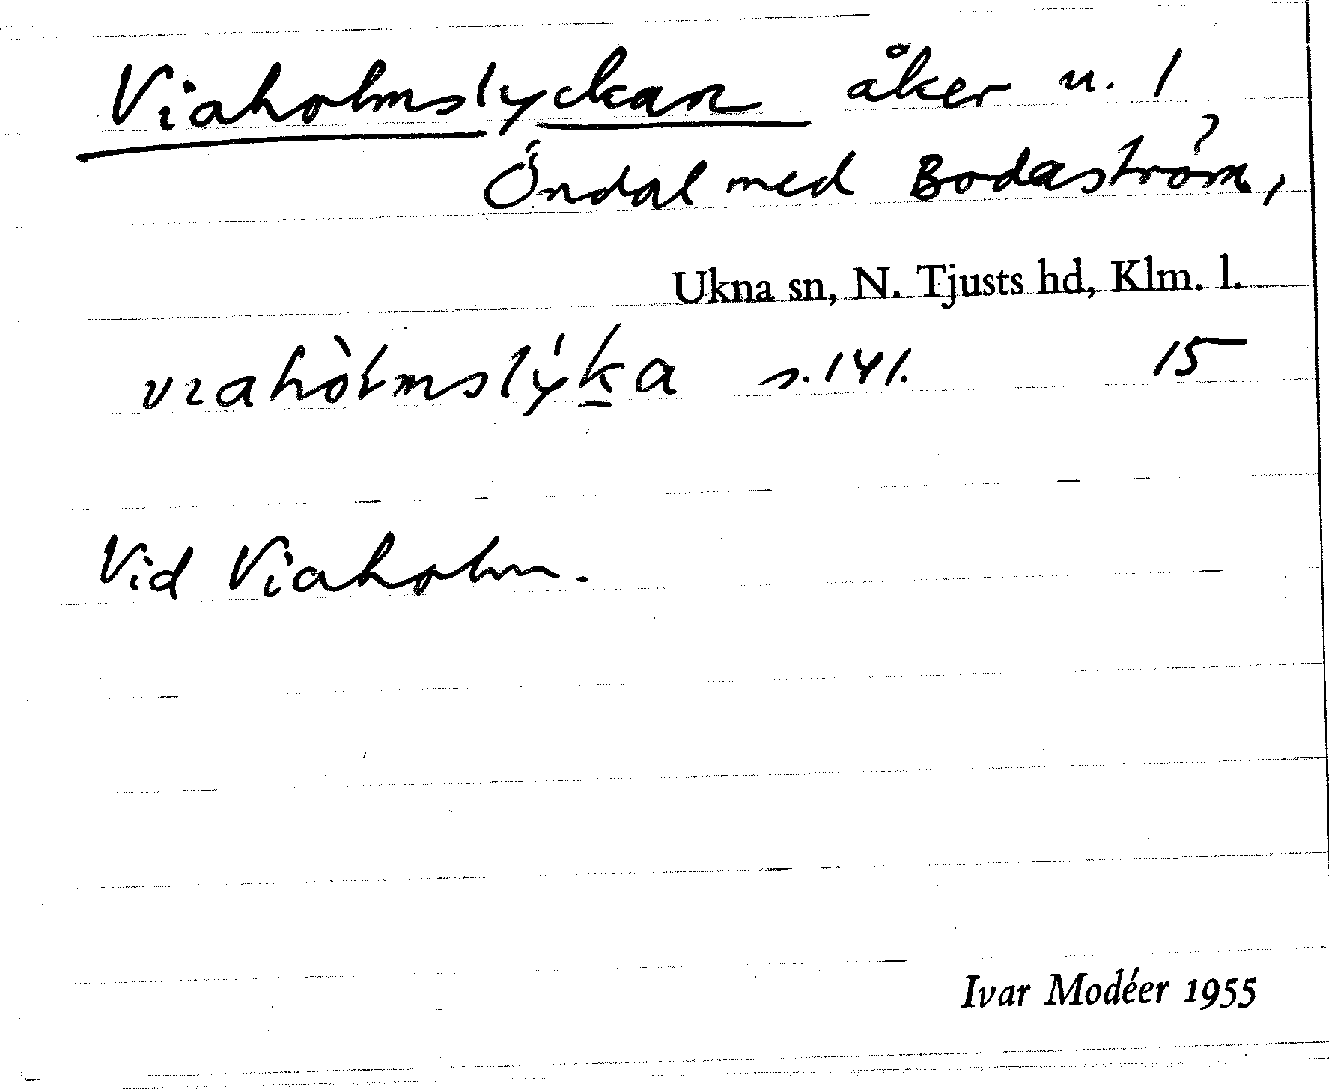 Viaholmslyckan åker u. 1
Öndal med Bodaström,
Ukna sn, N. Tjusts hd, Klm. l.
vıahòlmslýka s.141. 15
Vid Viaholm.
Ivar Modéer 1955